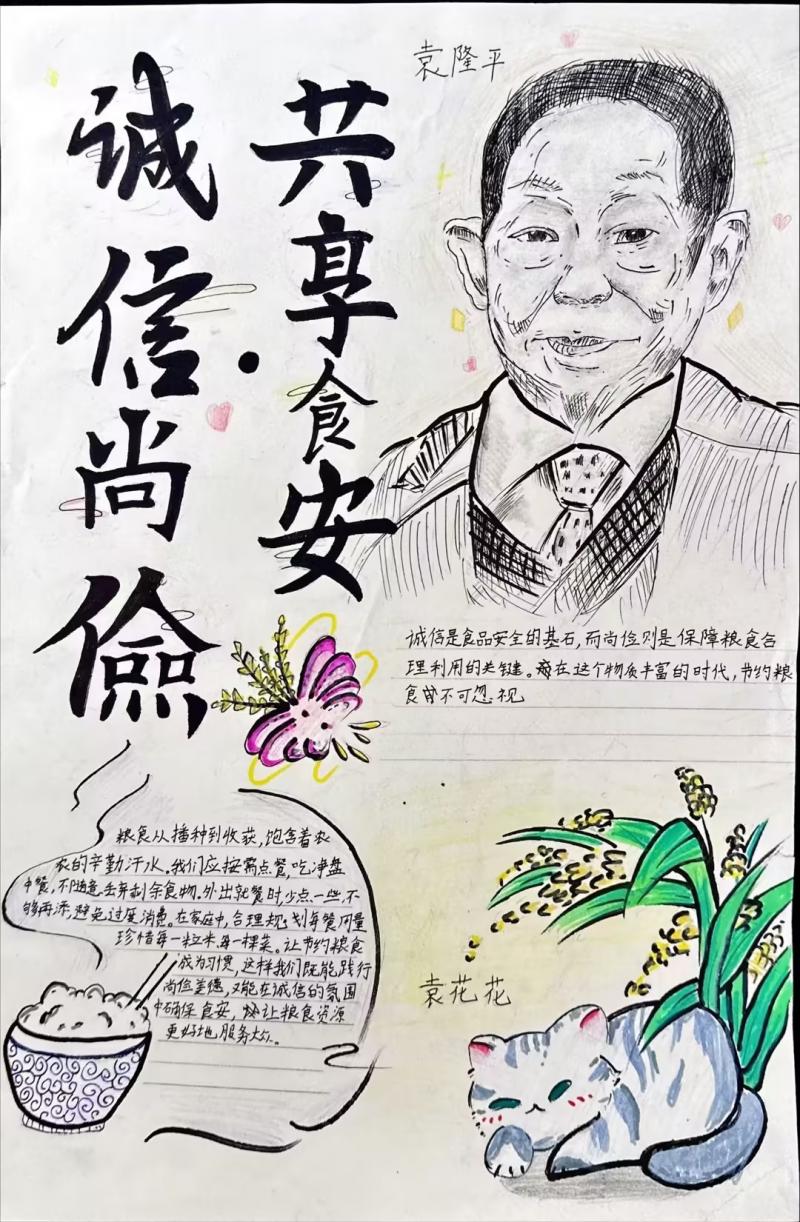 诚信尚俭·
共享食安
袁隆平
诚信是食品安全的基石,而尚俭则是保障粮食合
理利用的关键。在这个物质丰富的时代,节约粮
食却不可忽视
粮食从播种到收获,饱含着农
农的辛勤汗水。我们应按需点餐,吃净盘
中餐,不随意丢弃剩余食物。外出就餐时少点一些,不
够再添,避免过度消费。在家庭中,合理规划每餐用量
珍惜每一粒米,每一棵菜。让节约粮食
成为习惯,这样我们既能践行
尚俭美德,又能在诚信的氛围
中确保食安,让粮食资源
更好地服务大众。
袁花花